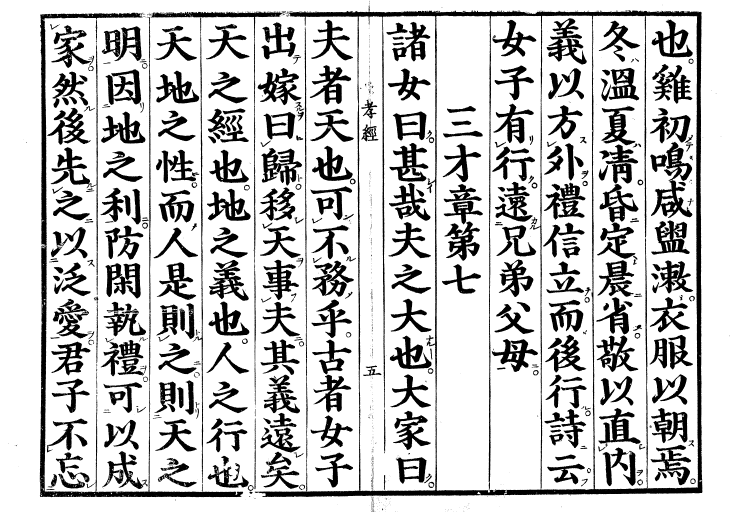 也雞初鳴咸盥漱衣服以朝焉
冬溫夏凊昏定晨省敬以直內
義以方外禮信立而後行詩云
女子有行遠兄弟父母
三才章第七
諸女曰甚哉夫之大也大家曰
孝經
五
夫者天也可不務乎古者女子
出嫁曰歸移天事夫其義遠矣
天之經也地之義也人之行也
天地之性而人是則之則天之
明因地之利防閑執禮可以成
家然後先之以泛愛君子不忘